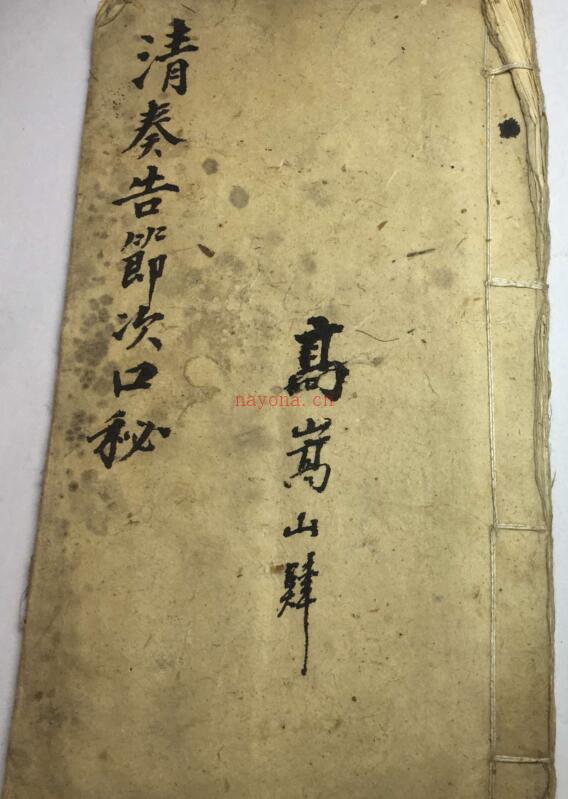 清奏告節次口秘
高嵩山肄
nayona.cn